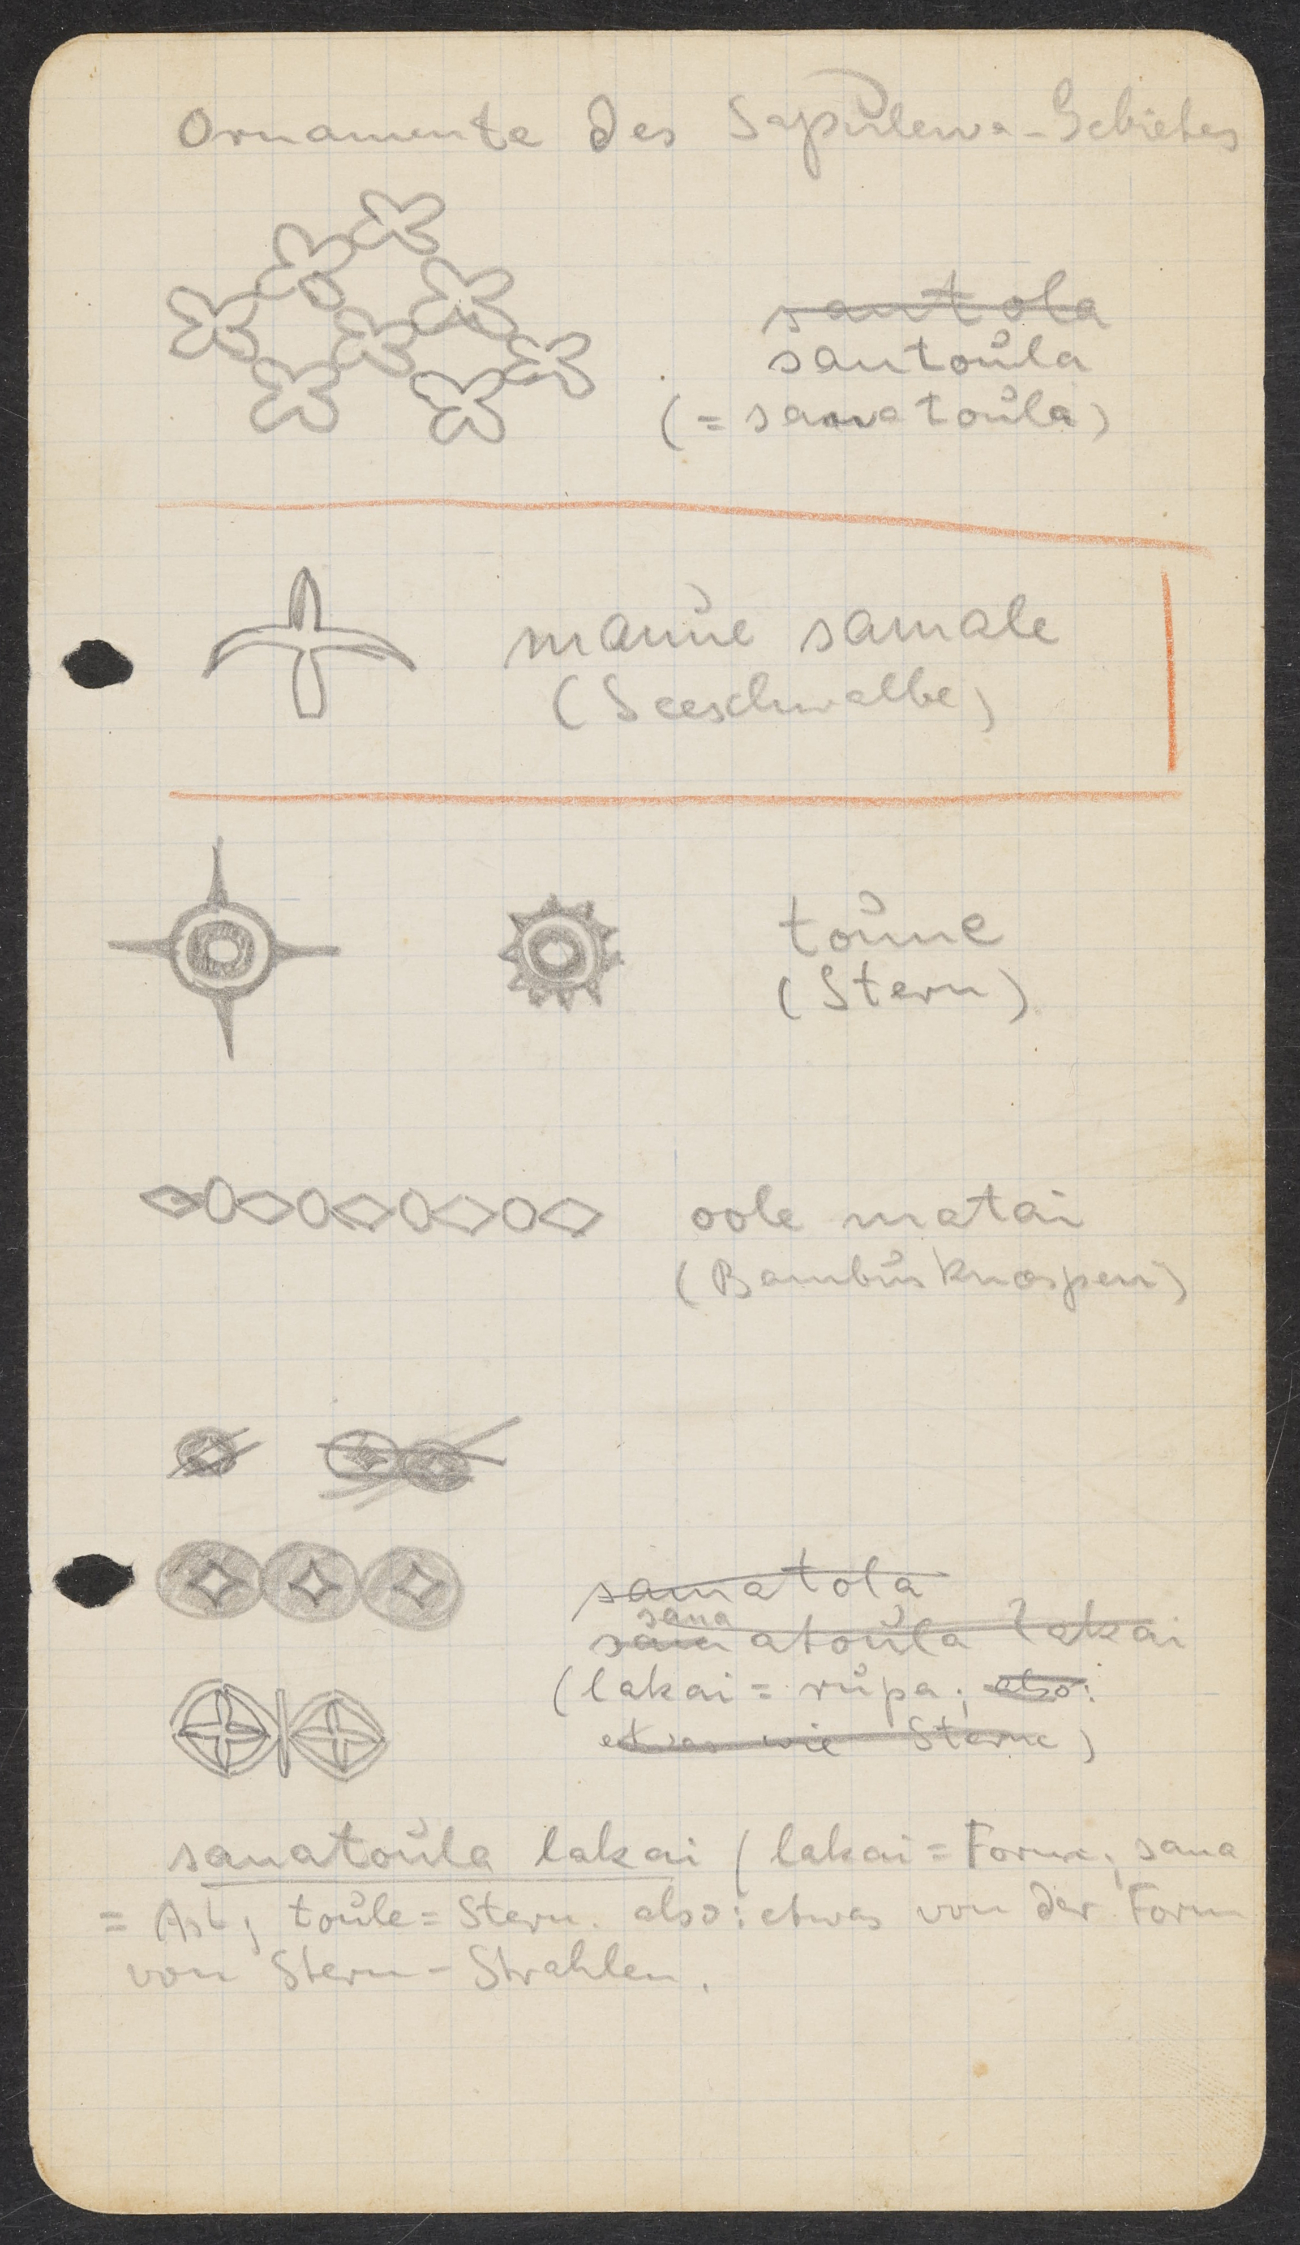 Ornamente des Sapulewa-Gebietes
santola
santoula
(= sanatoula)
manue samale
(Seeschwalbe)
toune
(Stern)
oole matai
(Bambusknospen)
sanatola
sana
sana atoula lakai
(lakai = rupa; also:
etwas wie Sterne)
sanatoula lakai (lakai = Form; sana
= Ast; toule = Stern. also: etwas von der Form
von Stern-Strahlen.